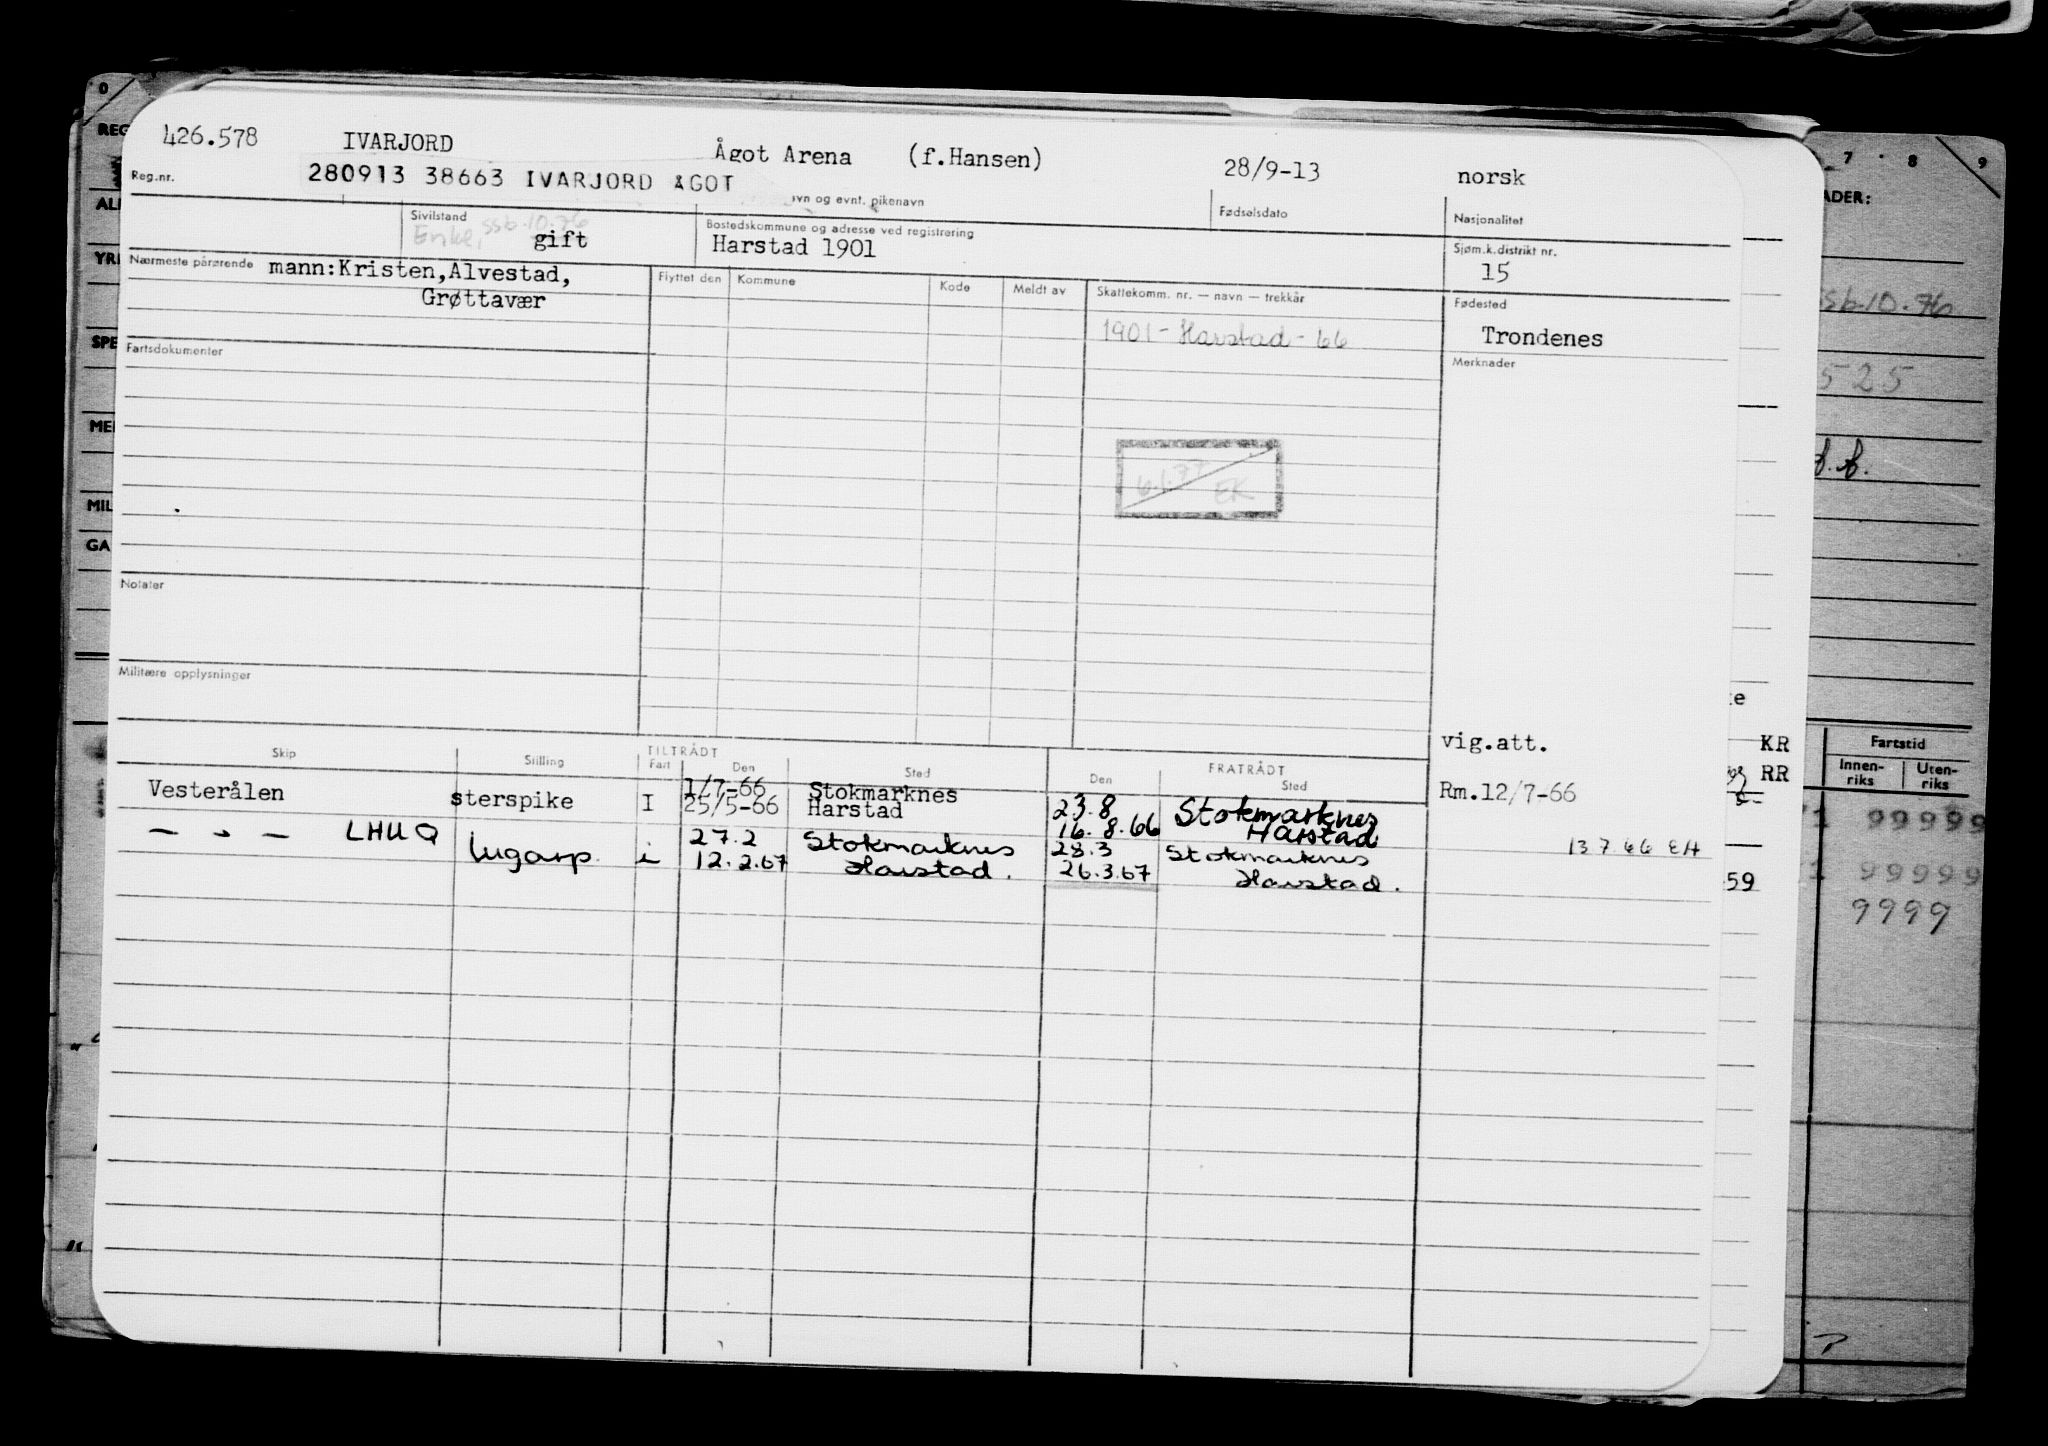 426.578 IVARJORD Ågot Arena (f.Hansen) 28/9-13 norsk
280913 38663 IVARJORD ÅGOT
Reg.nr. vn og evnt. pikenavn Fødselsdato Nasjonalitet
Sivilstand Enke, ssb.10.76 gift
Bostedskommune og adresse ved registrering
Harstad 1901
Sjøm.k.distrikt nr.
15
Nærmeste pårørende mann:Kristen,Alvestad,
Grøttavær
Flyttet den Kommune Kode Meldt av Skattekomm. nr. — navn — trekkår
1901 - Harstad - 66
Fødested
Trondenes
Merknader
Fartsdokumenter
6.1.77 EK
Notater
Militære opplysninger
vig.att. KR
Rm.12/7-66 RR
13 7 66 EH
Skip Stilling TILTRÅDT FRATRÅDT
Fart Den Sted Den Sted
1/7-66 Stokmarknes 23.8 Stokmarknes
Vesterålen sterspike I 25/5-66 Harstad 16.8.66 Harstad
27.2 Stokmarknes 28.3 Stokmarknes
— " — LHUQ lugarp. i 12.2.67 Harstad. 26.3.67 Harstad.
0
REG
ALI
YR
SPE
MEI
MIL
GA
7 8 9
ADER:
ssb.10.76
525
te
Fartstid
Innen-
riks
Uten-
riks
1 99999
59
1 99999
9999